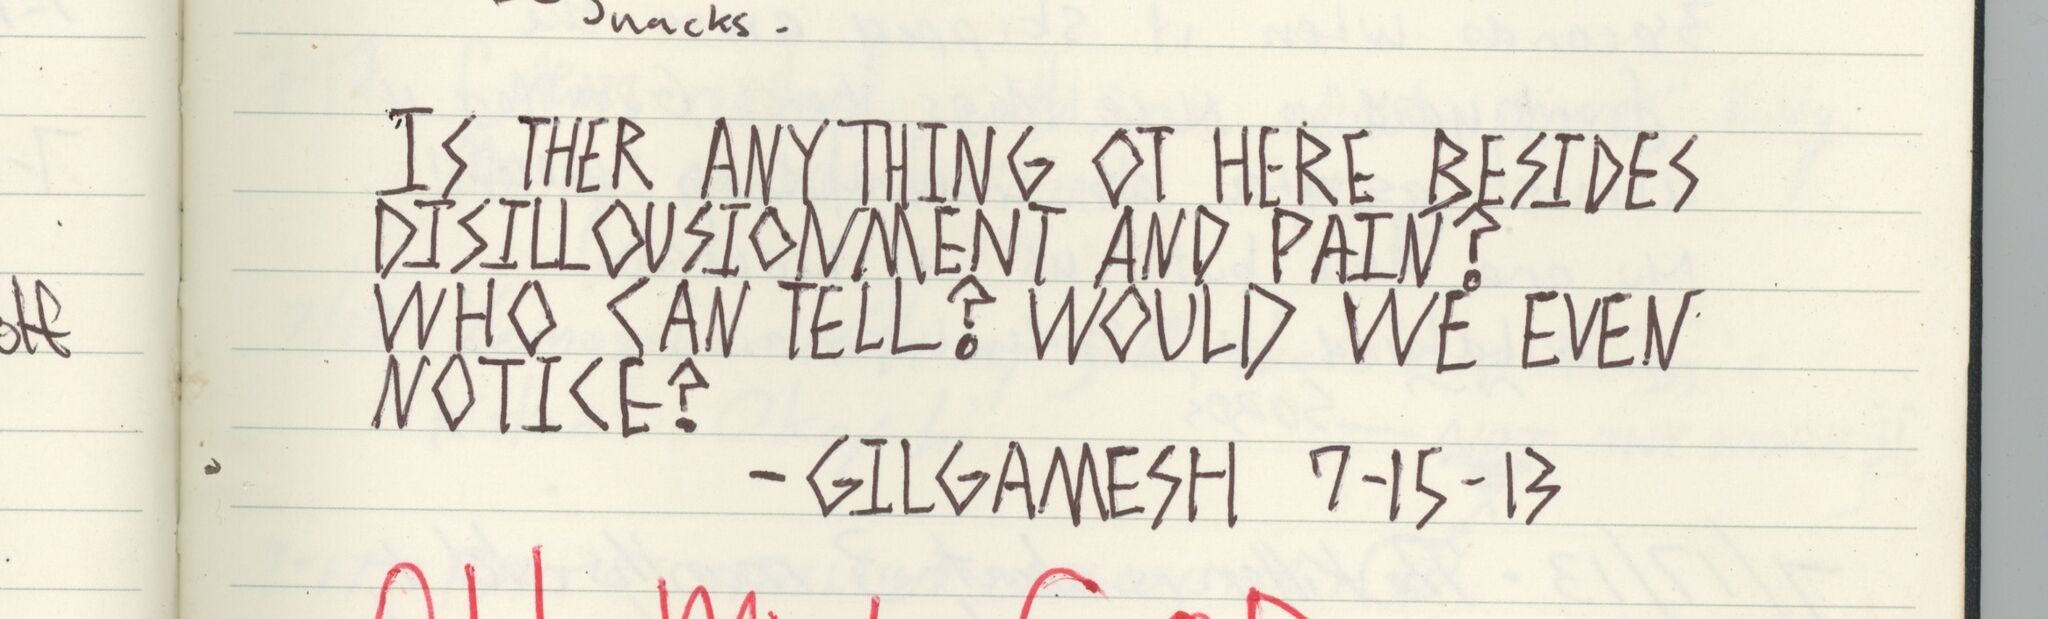 Snacks.
IS THER ANYTHING OT HERE BESIDES
DISILLOUSIONMENT AND PAIN?
WHO CAN TELL? WOULD WE EVEN
NOTICE?
-GILGAMESH 7-15-13